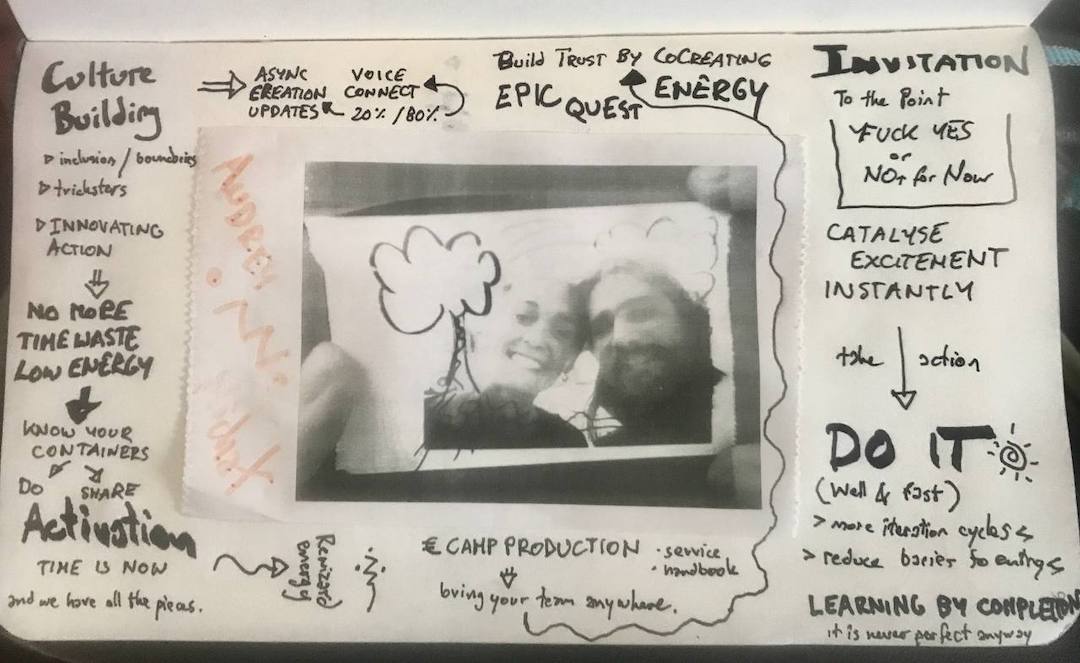 Culture
Building
▷ inclusion / boundries
▷ tricksters
▷ INNOVATING
ACTION
⇓
NO MORE
TIME WASTE
LOW ENERGY
↓
KNOW YOUR
CONTAINERS
DO SHARE
Activation
TIME IS NOW
and we have all the pieces.
⇒ ASYNC
CREATION
UPDATES
VOICE
CONNECT
20% / 80%
Build TRUST By CoCREATING
EPIC QUEST ENERGY
€ CAMP PRODUCTION
· service
· handbook
⇓
bring your team anywhere.
INVITATION
To the Point
FUCK YES
or
NOT for NOW
CATALYSE
EXCITEMENT
INSTANTLY
take ↓ action
DO IT
(Well & fast)
> more iteration cycles <
> reduce barier to entry <
LEARNING BY COMPLETION
it is never perfect anyway